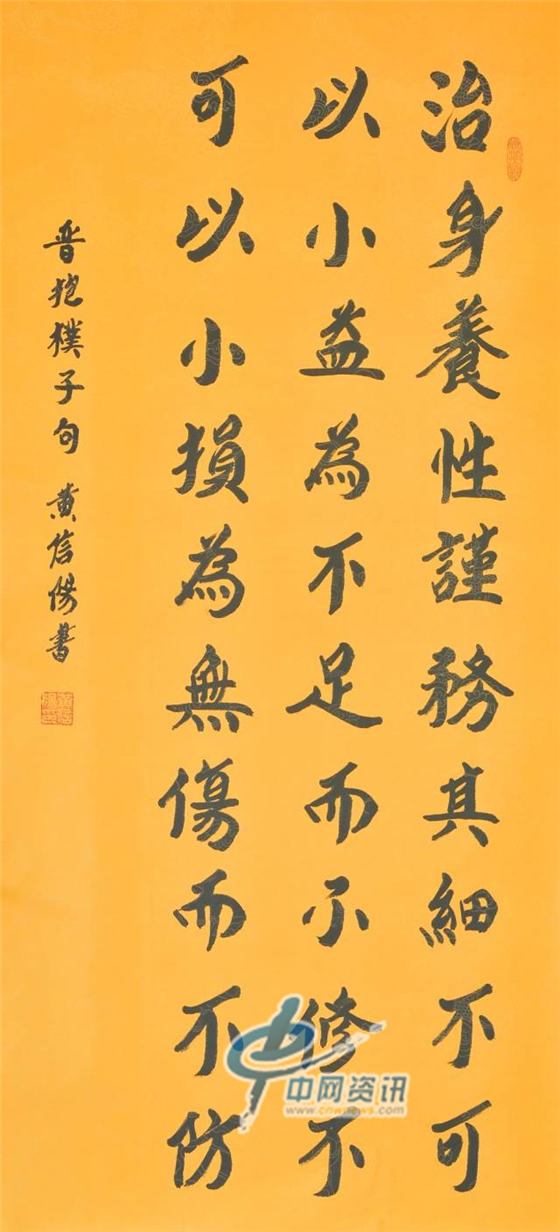 治身養性謹務其細不可
以小益為不足而不修不
可以小損為無傷而不防
晋抱樸子句 黄信陽書
中网资讯
www.cnwnews.com